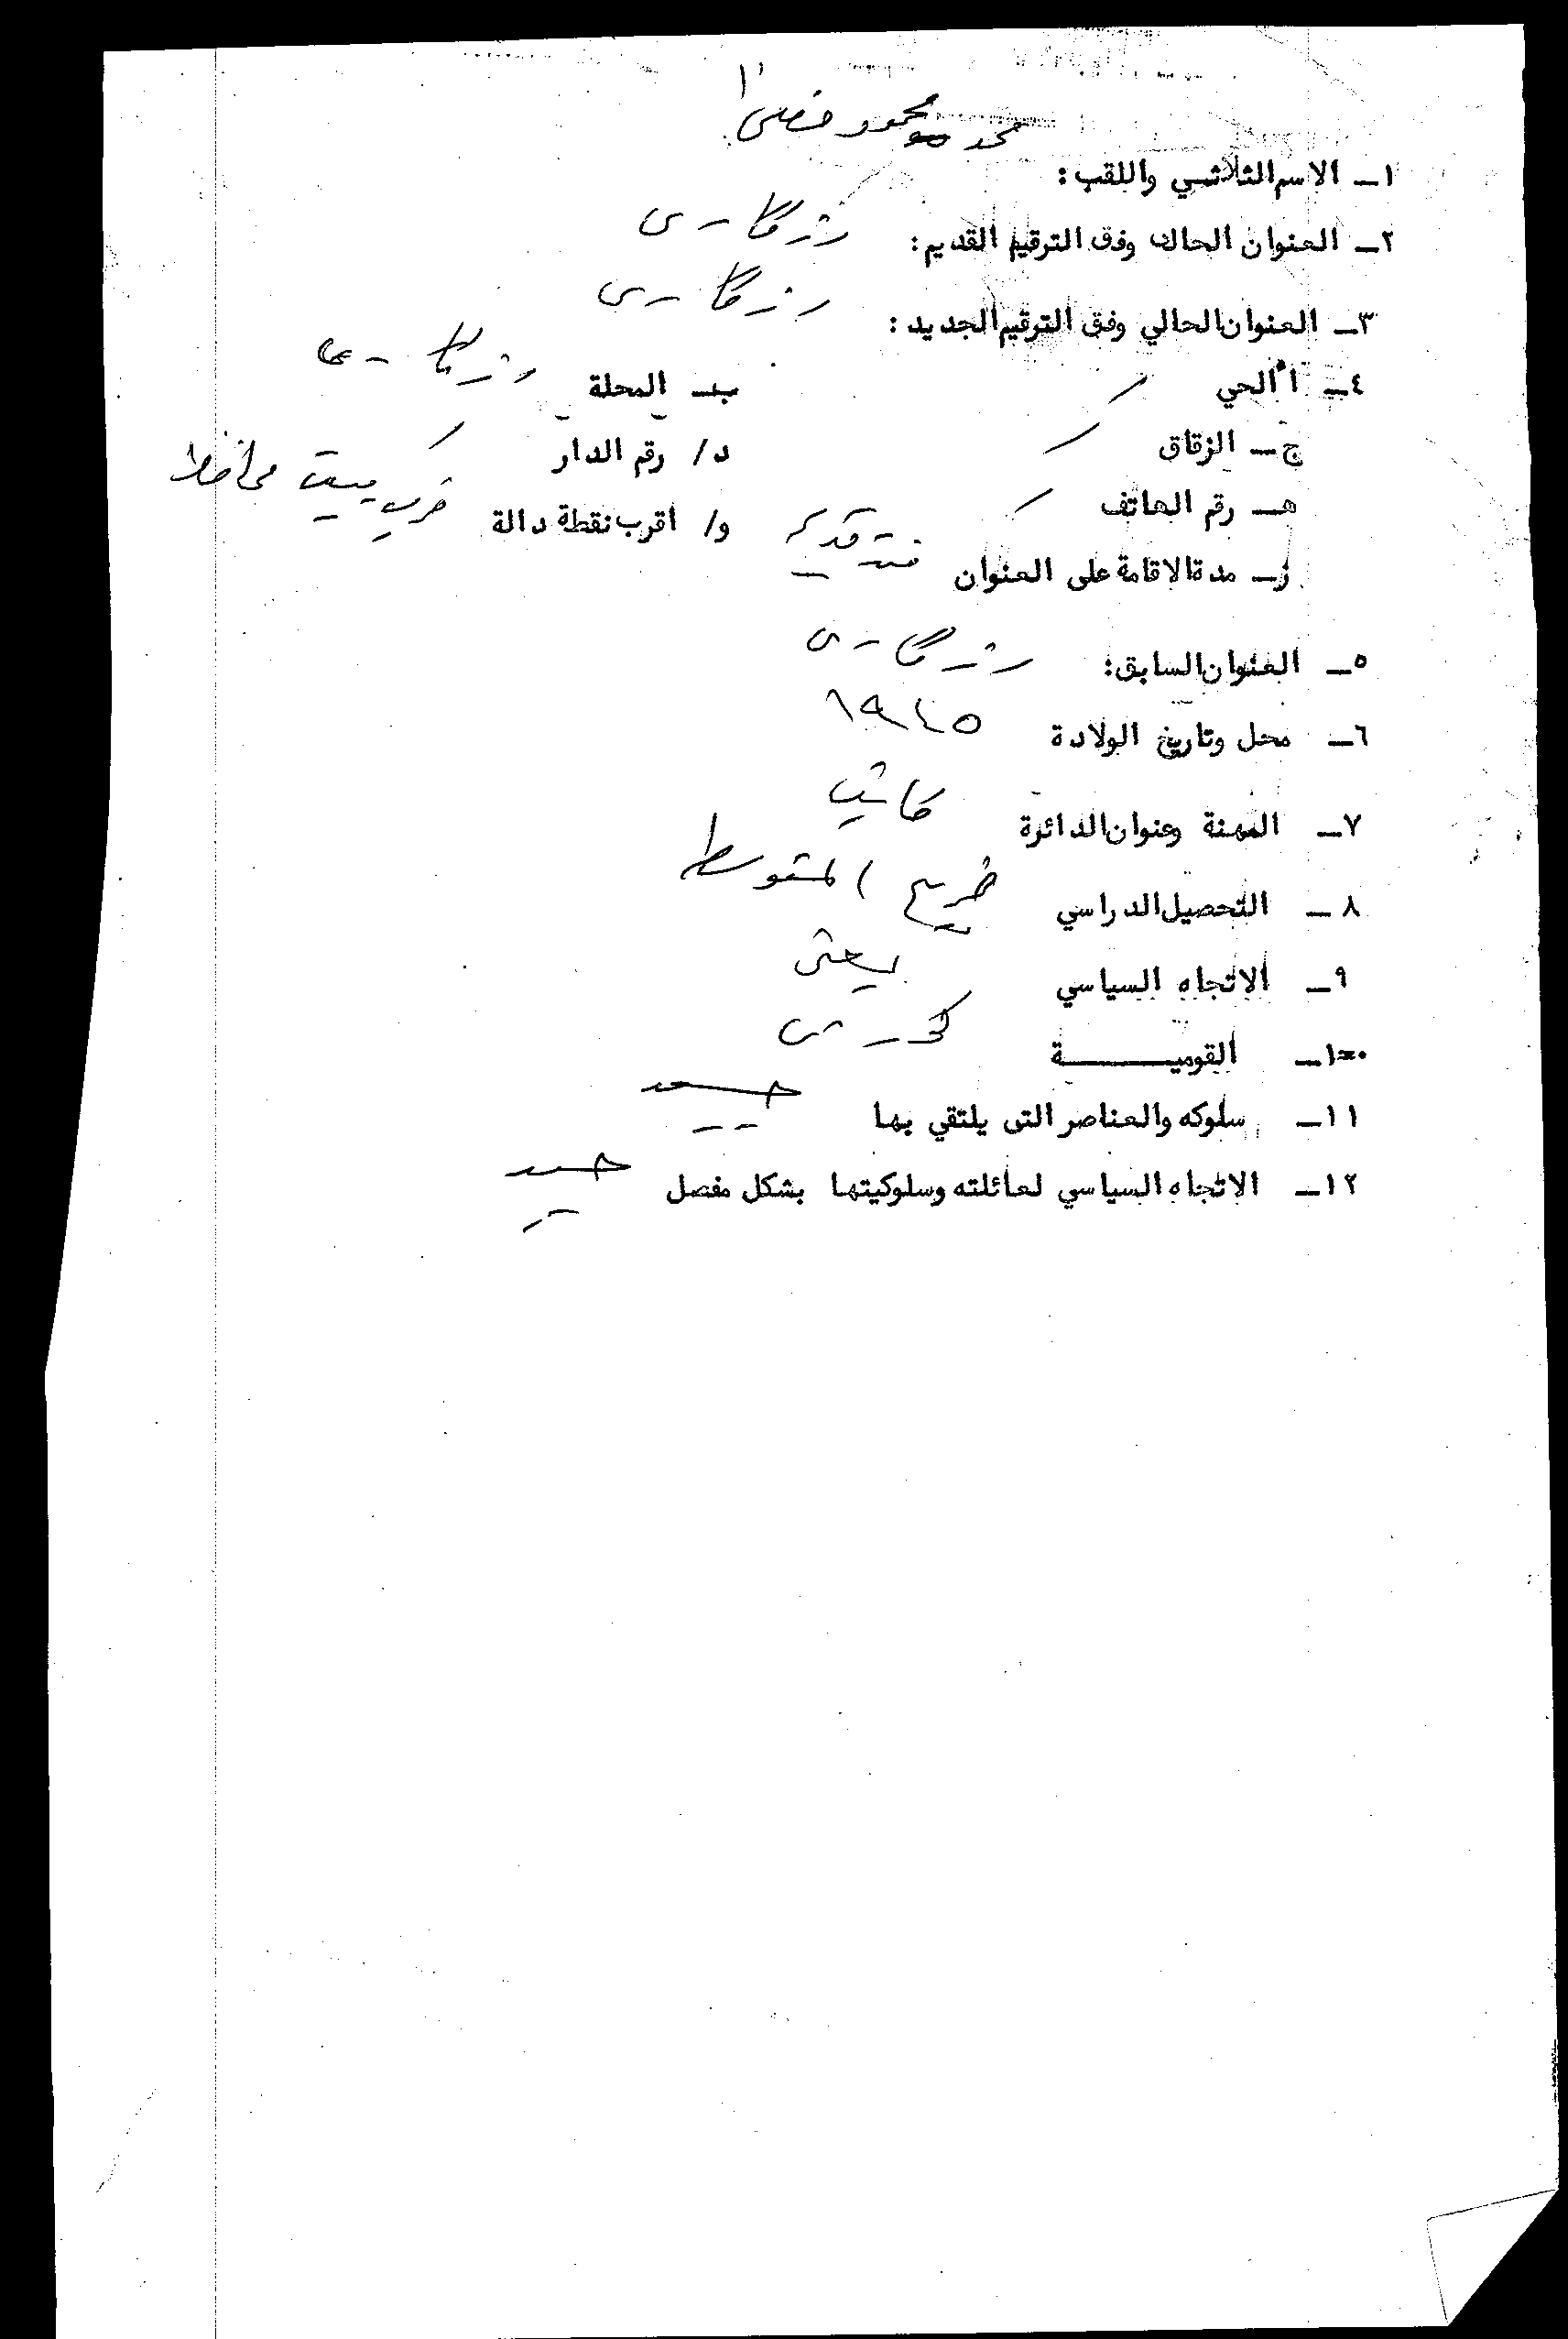 محمد محمود
١ــ الاسم الثلاثي واللقب :
رزگاري
٢ــ العنوان الحالي وفق الترقيم القديم :
رزگاري
٣ــ العنوان الحالي وفق الترقيم الجديد :
٤ــ أ الحي / بـ ــ المحلة رزگاري
ج ــ الزقاق / د/ رقم الدار /
هـ ــ رقم الهاتف / و/ اقرب نقطة دالة قرب بيت محافظ
ز ــ مدة الاقامة على العنوان
٥ــ العنوان السابق : رزگاري
٦ــ محل وتاريخ الولادة ١٩٤٥
٧ــ المهنة وعنوان الدائرة كاتب
٨ــ التحصيل الدراسي خريج المتوسط
٩ــ الاتجاه السياسي بعثي
١٠ــ القوميـــــة كوردي
١١ــ سلوكه والعناصر التي يلتقي بها جيد
١٢ــ الاتجاه السياسي لعائلته وسلوكيتها بشكل مفصل جيد